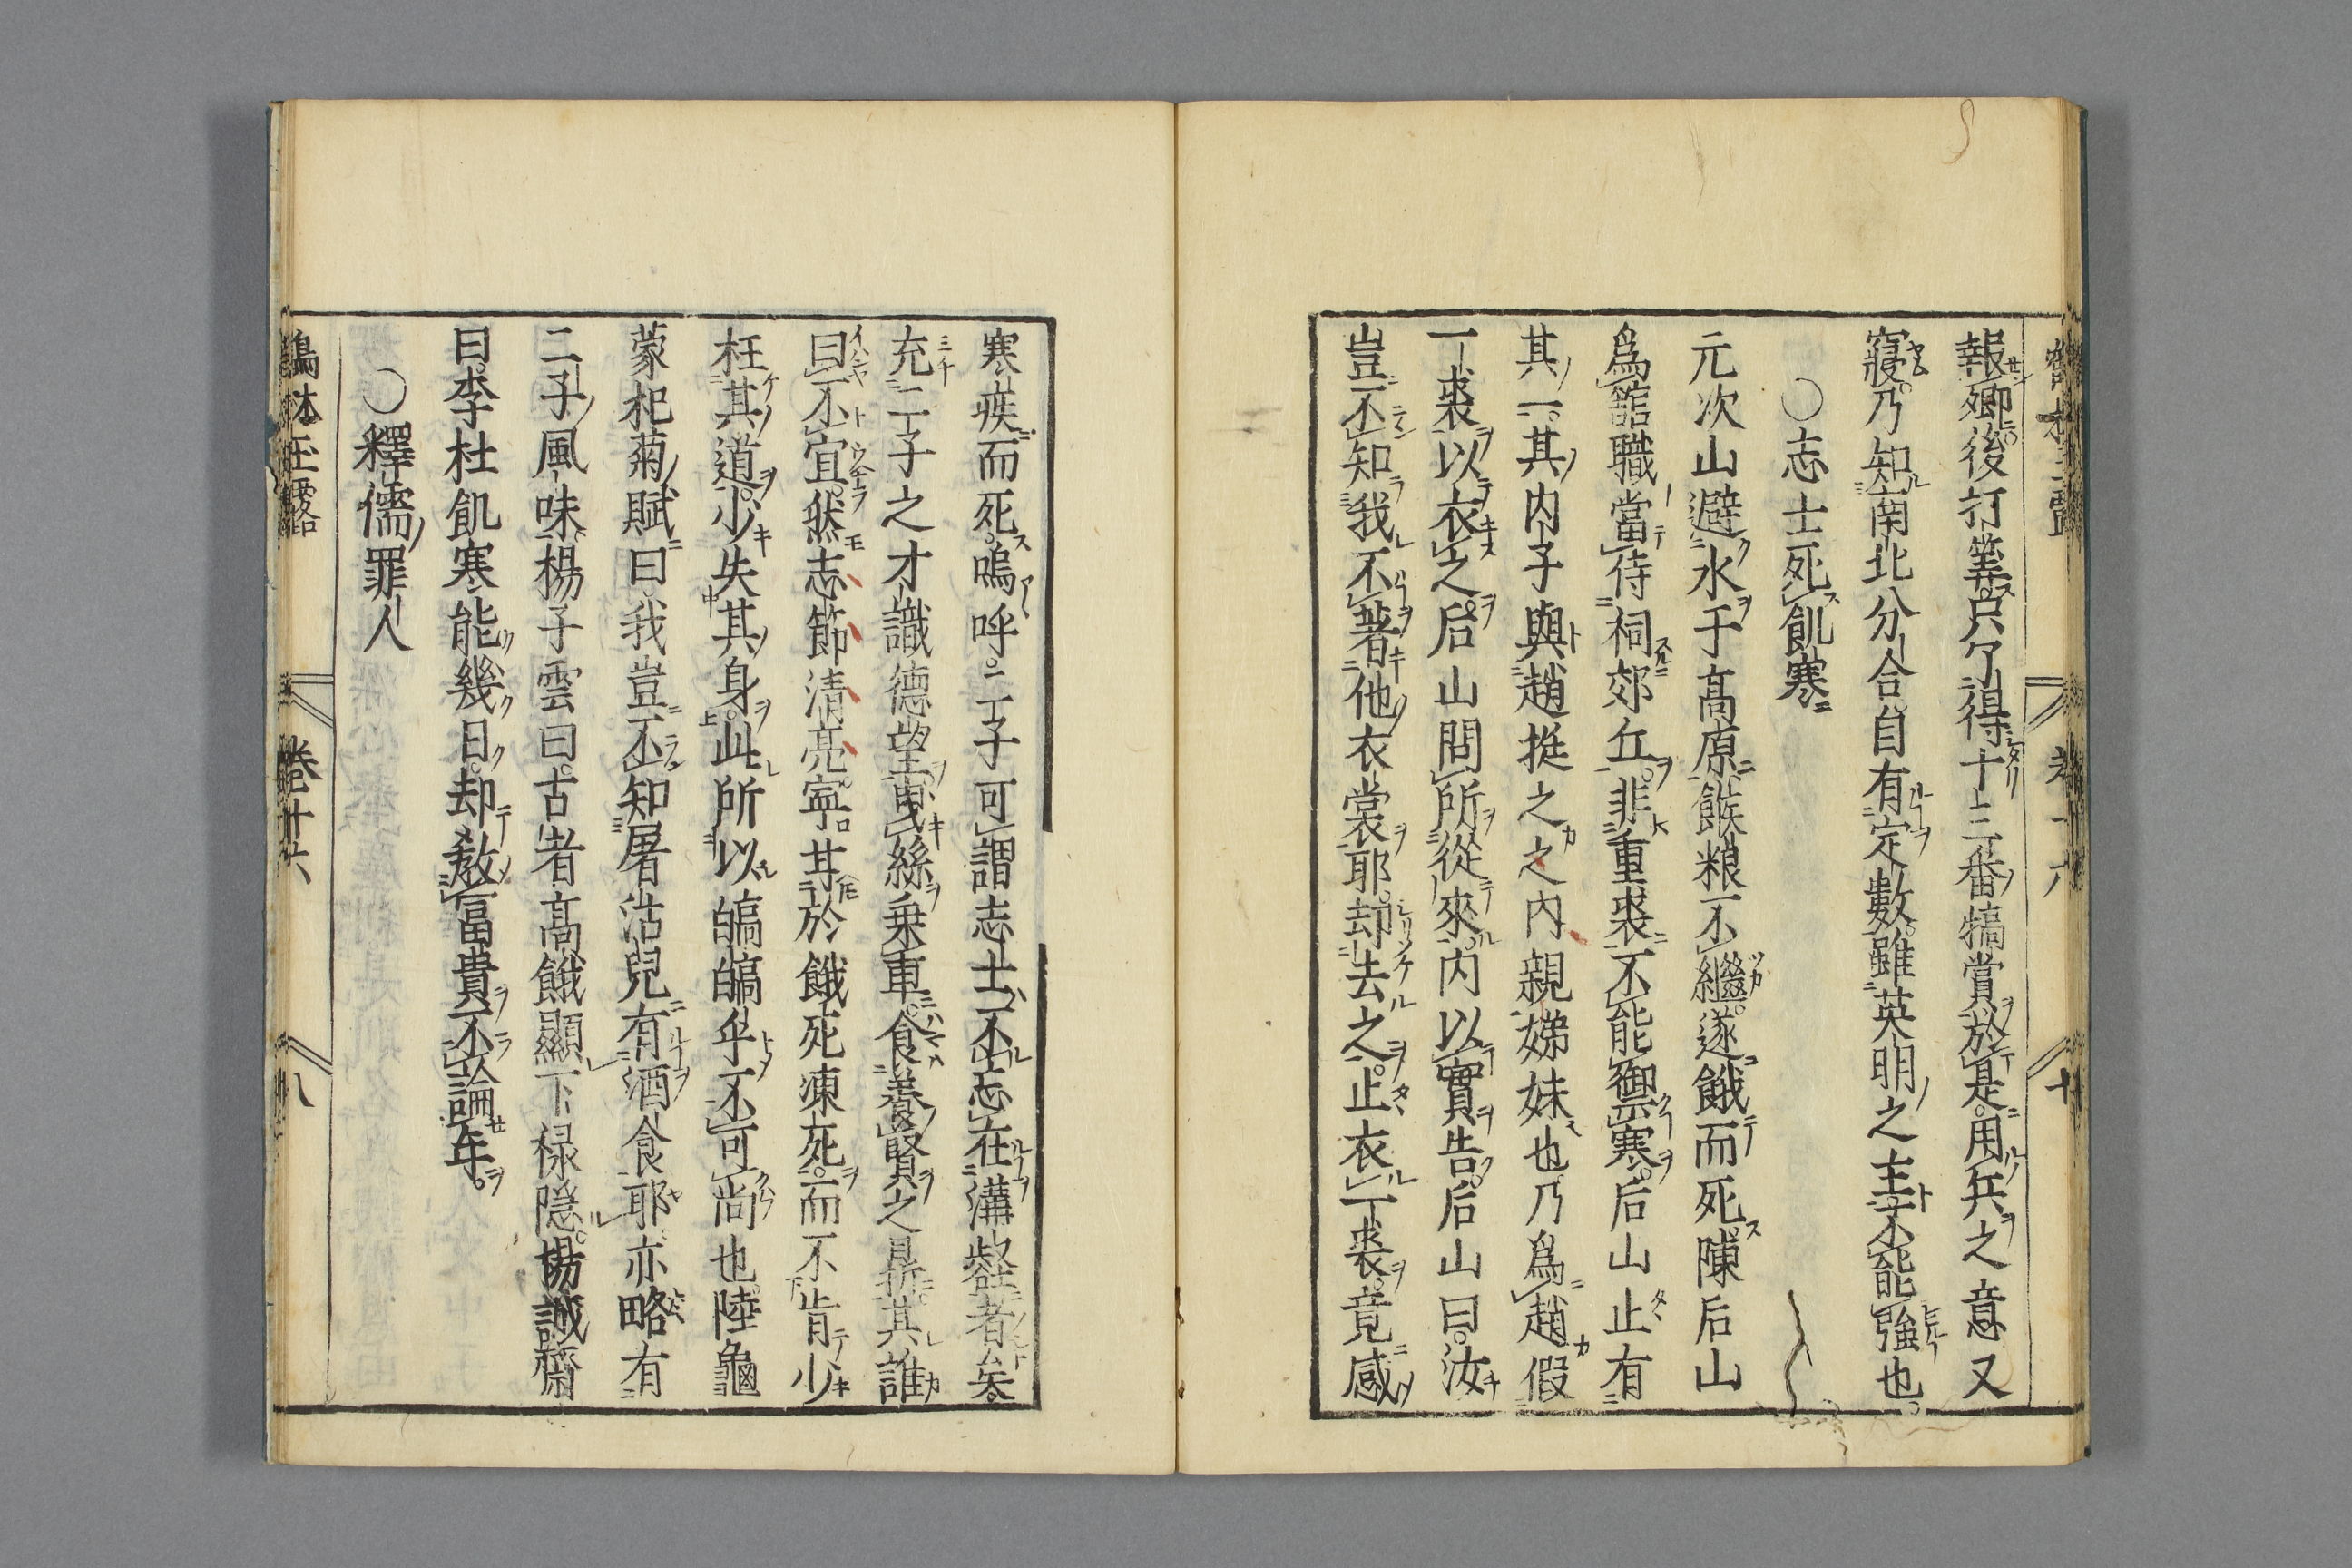 報卿後打筭只了得十三番犒賞於是用兵之意又
寢乃知南北分合自有定數雖英明之主不能強也
○志士死飢寒
元次山避水于高原餱粮不繼遂餓而死陳后山
爲館職當侍祠郊丘非重裘不能禦寒后山止有
其一其内子與趙挺之之内親娣妹也乃爲趙假
一裘以衣之后山問所從來内以實告后山曰汝
豈不知我不著他衣裳耶却去之止衣一裘竟感
寒疾而死嗚呼二子可謂志士不忘在溝壑者矣
充二子之才識德望曳絲乗車食養賢之鼎其誰
曰不宜然志節清亮寧其於餓死凍死而不肯少
枉其道少失其身此所以皜皜乎不可尚也陸龜
蒙杞菊賦曰我豈不知屠沽兒有酒食耶亦略有
二子風味楊子雲曰古者高餓顯下禄隠楊誠齋
曰李杜飢寒能幾日却教冨貴不論年
○釋儒罪人
鶴林玉露 卷十六 八